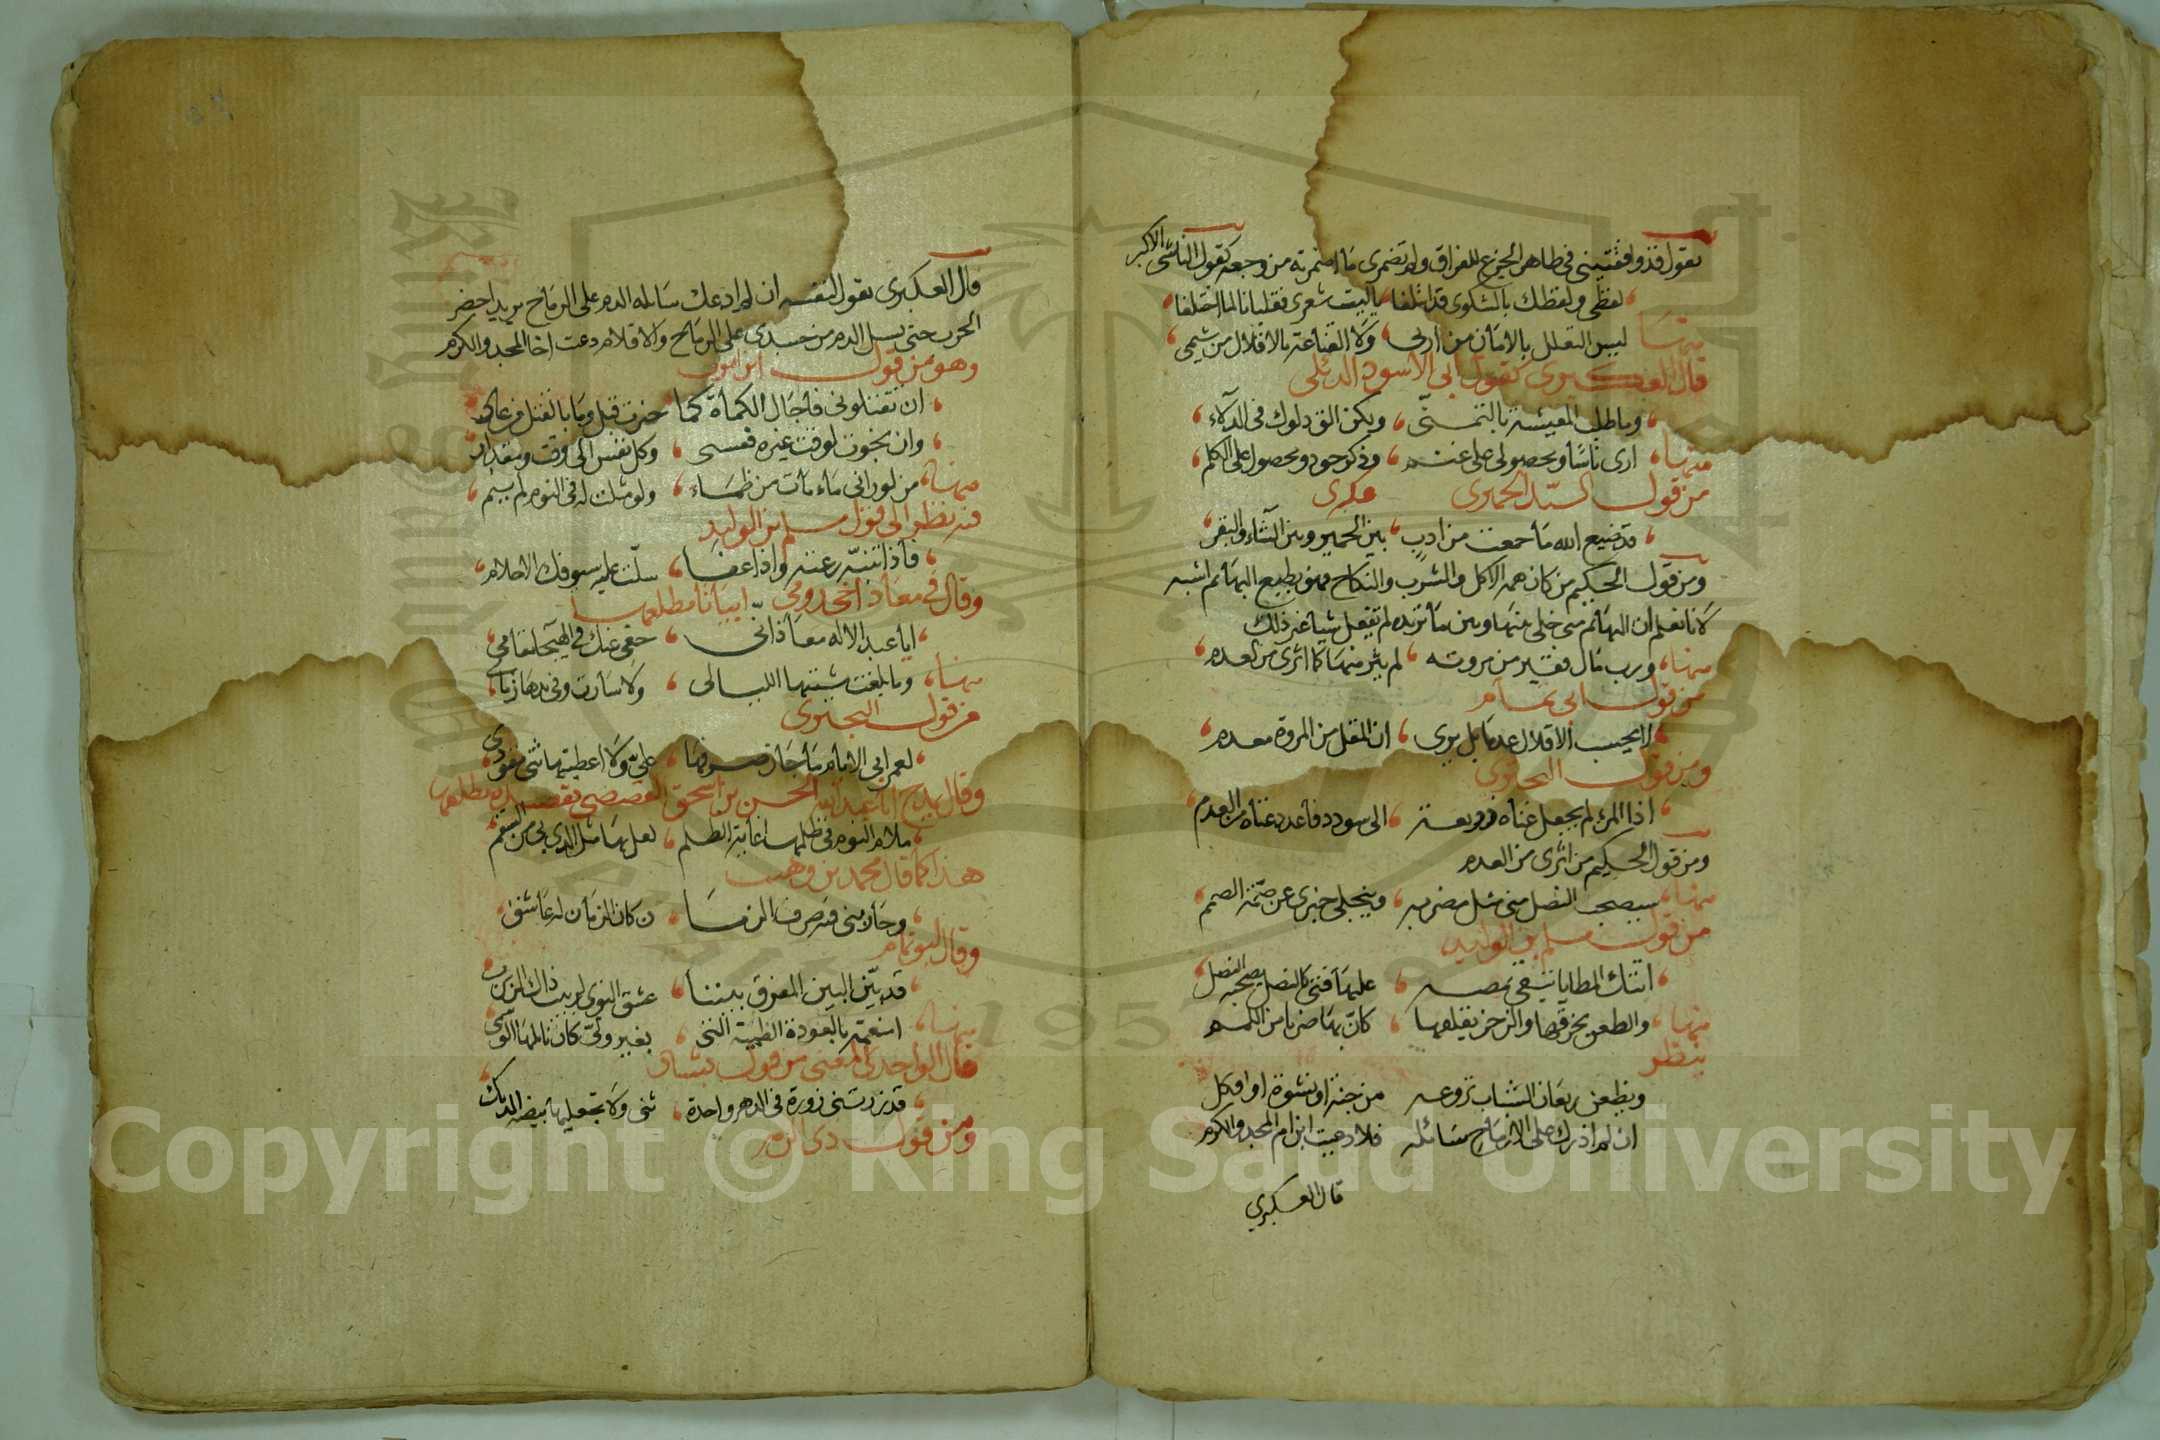 يقول قد وافقتيني في ظاهر الجزع للفراق ولم تضمري ما اضمرته من وجعه كقول الناشي الاكبر
لفظي ولفظك بالشكوى قد ائتلفا يا ليت شعري فقلبانا لما اختلفا
منها ليس التعلل بالامال من اربي ولا القناعة بالاقلال من شيمي
قال العكبري كقول ابي الاسود الدئلي
وما طلب المعيشة بالتمني ولكن الق دلوك في الدلاء
منها ارى ناسا ومحصولي على غنم وذكر جود ومحصولي على الكلم
من قول السيد الحميري
قد ضيع الله ما جمعت من ادب بين الحمير وبين الشاء والبقر
ومن قول الحكيم من كان همه الاكل والشرب والنكاح فهو بطبع البهائم اشبه
لانا نعلم ان البهائم متى خلى بينها وبين ما تريده لم تفعل شيا غير ذلك
منها ورب مال فقير من مروته لم يثر منها كما اثرى من العدم
من قول ابي تمام
لا يحسب الاقلال عدما بل يرى ان المقل من المروة معدم
ومن قول البحتري
اذا المرء لم يجعل غناه ذريعة الى سودد فاعدد غناه من العدم
ومن قول الحكيم من اثرى من العدم
منها سيصحب النصل مني مثل مضربه وينجلي خبري عن صمة الصمم
من قول مسلم بن الوليد
اتتك المطايا تهتدي بمطية عليها فتى كالنصل يصحبه النصل
منها والطعن يخرقها والزجر يقلقها كان بها ضربا من اللمم
ينظر
وبطعن ريعان الشباب تروعه من جنة او نشوة او افكل
ان لم اذرك على الارماح سائله فلا دعيت ابن ام المجد والكرم
قال العكبري
قال العكبري يقول لنفسه ان لم ادعك سائله الدم على الرماح يريد احضر
الحرب حتى يسل الدم من جسدي على الرماح والا فلا دعيت اخا المجد والكرم
وهو من قول
ان تقتلوني فاجال الكماة كما
وان نجوت لوقت غيره فعسى وكل نفس الى وقت ومقدار
منها من لو راني ماء مات من ظماء ولو مثلت له في النوم لم ينم
فيه نظر الى قول مسلم بن الوليد
فاذا تنبه رعته واذا غفا سلت عليه سيوفك الاحلام
وقال في معاذ ابياتا مطلعها
ايا عبد الاله معاذ اني خفي عنك في الهيجا مقامي
منها وما بلغت مشيتها الليالي ولا سارت وفي يدها زمامي
من قول البحتري
لعمر ابي الايام ما جار صرفها علي ولا اعطيتها ثني مقودي
وقال يمدح ابا عبد الله الحسن بن اسحق بقصيدة مطلعها
ملام النوى في ظلمها غاية الظلم لعل بها مثل الذي بي من السقم
هذا كما قال محمد بن وهيب
وحاربني فيه صرف الزمان كان الزمان له عاشق
وقال ابو تمام
قد بين البين المفرق بيننا عشق النوى لربيب ذاك الربرب
منها امنعمة بالعودة الظبية التي بغير ولي كان نائلها الوسمي
قال الواحدي المعنى من قول بشار
قد زرتني زورة في الدهر واحدة ثني ولا تجعليها بيضة الديك
ومن قول ذي الرمه